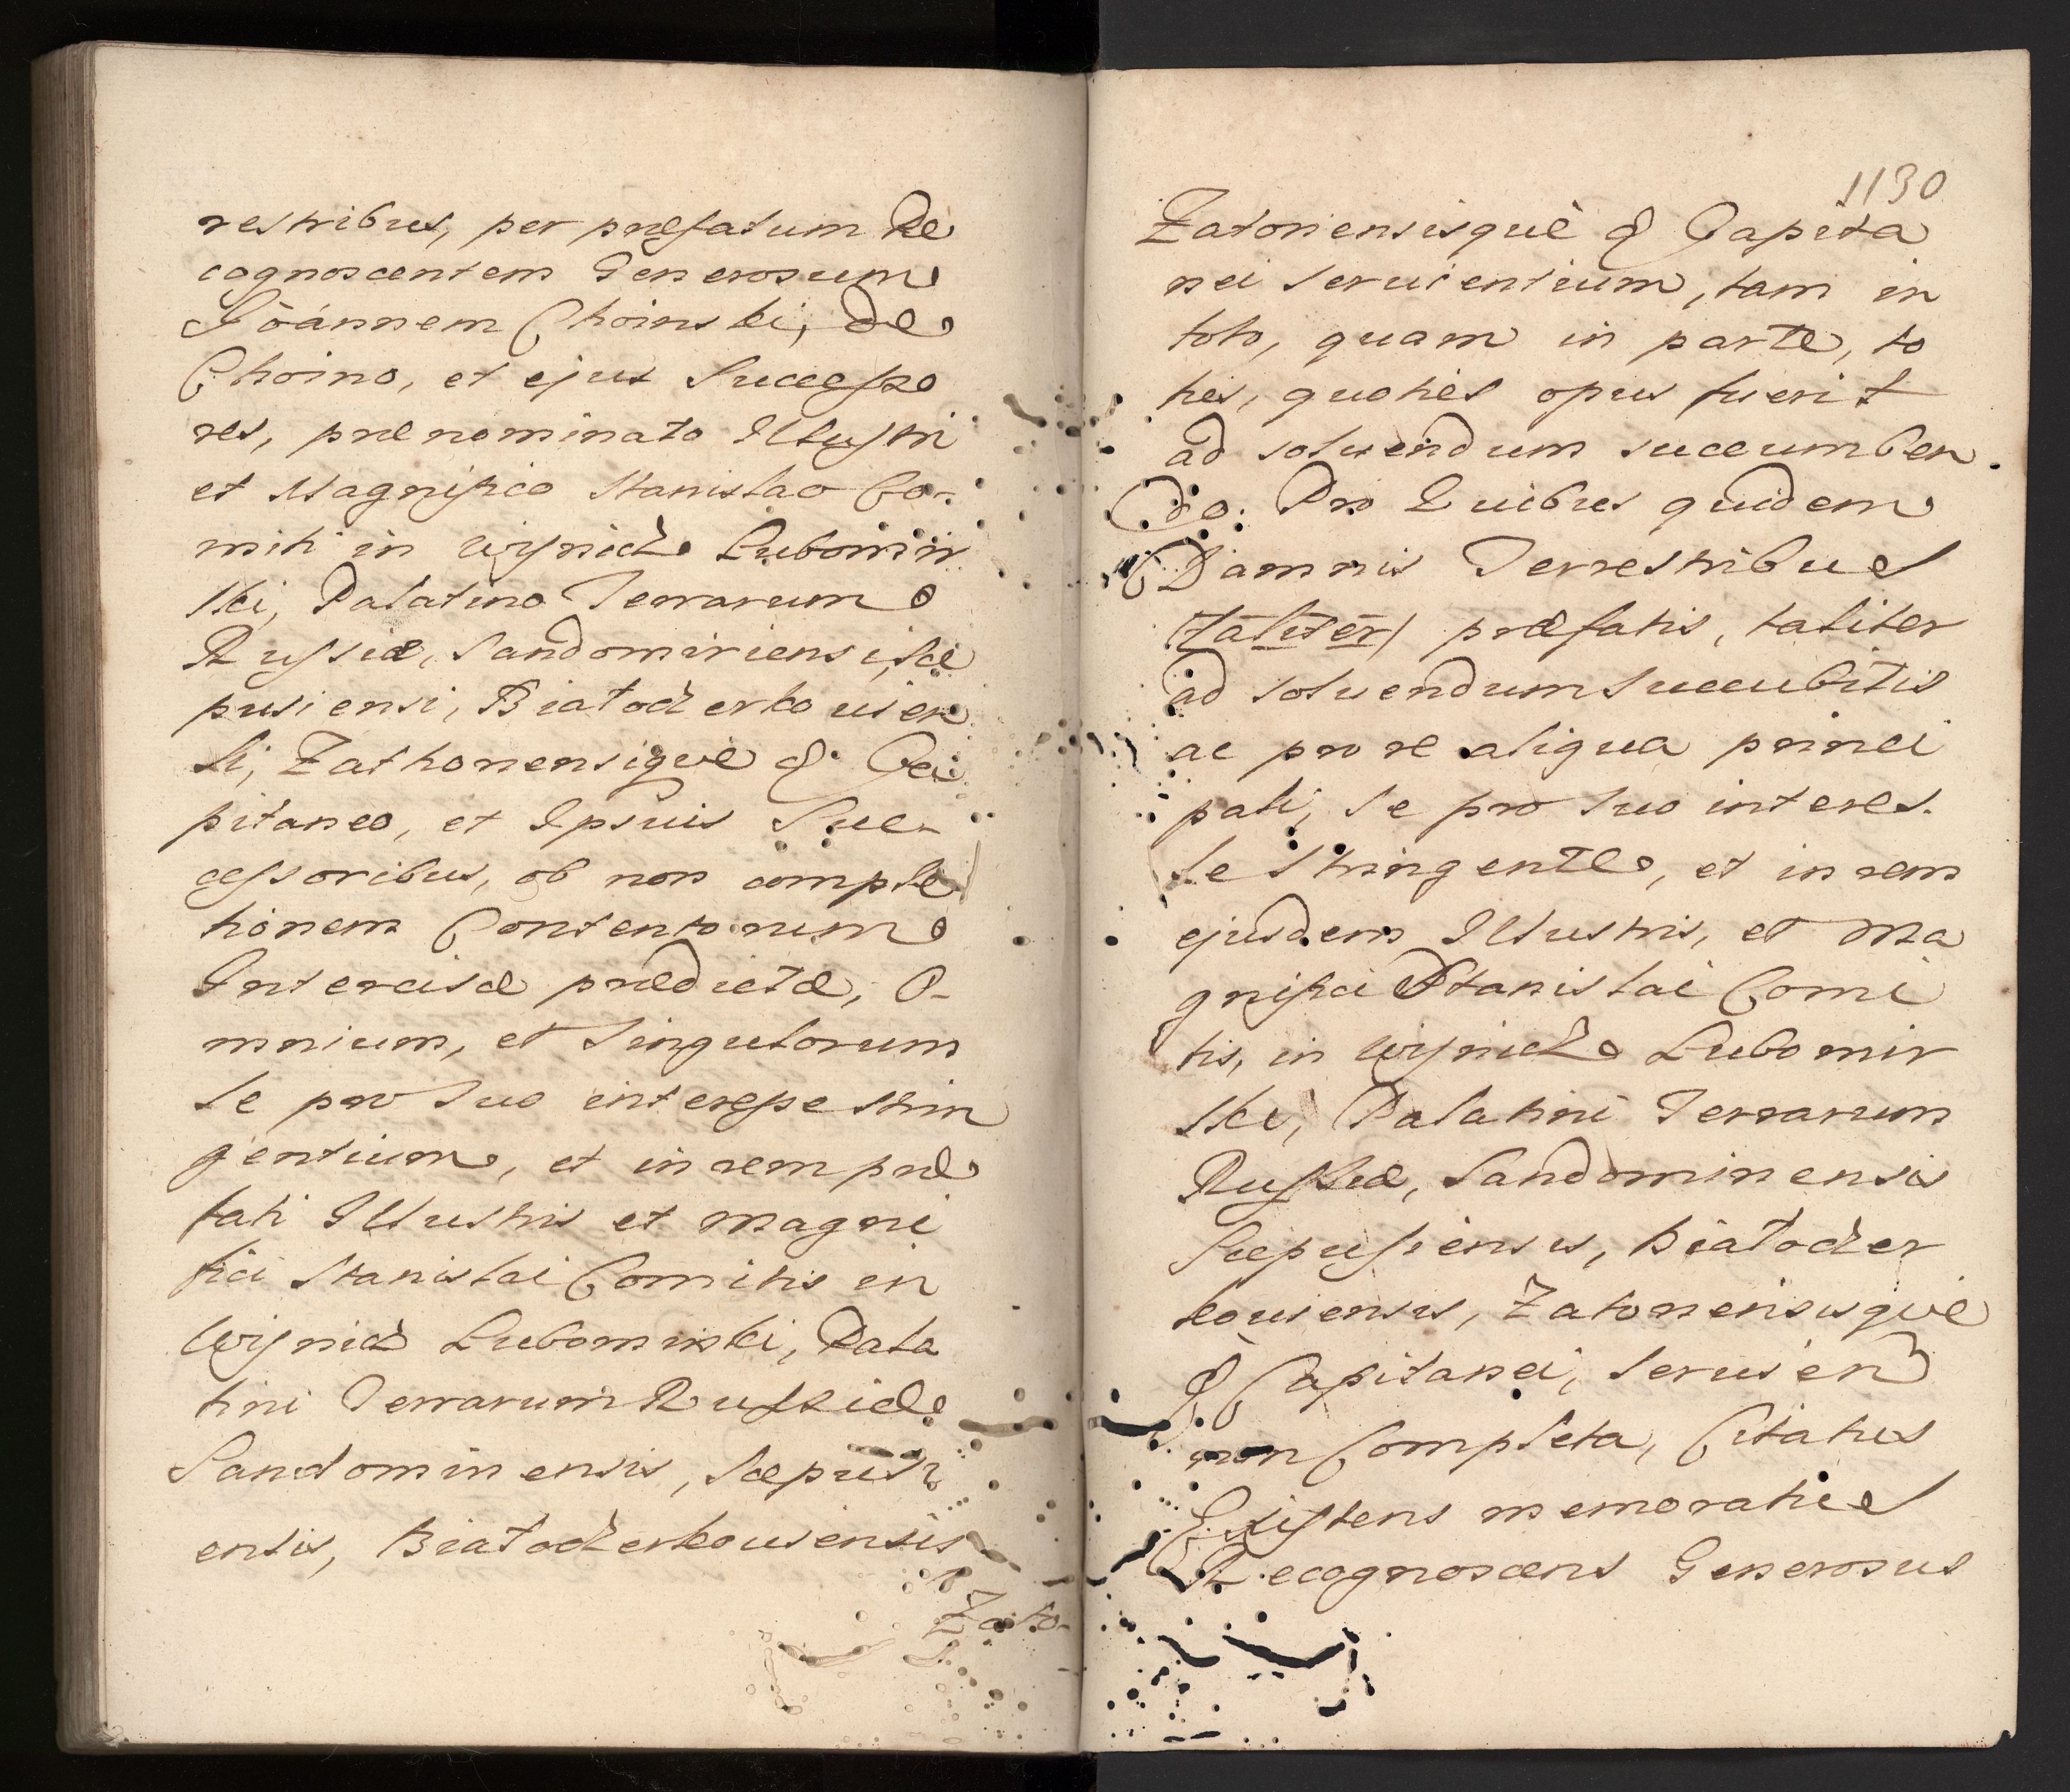 restribus, per præfatum Re
cognoscentem Generosum
Joannem Choinski, de
Choino, et ejus Successo
res, prænominato Illustri
et Magnifico Stanislao Co-
miti in Wiśnicz Lubomir
ski, Palatino Terrarum
Russiæ, Sandomiriensi, Scæ
pusiensi, Białocerkouien
si, Zathonensiqve & Ca
pitaneo, et Ipsuis Suc-
cessoribus, ob non comple
tionem Contentorum
Intercisæ prædictæ, O-
mnium, et Singulorum
Se pro Suo interesse strin
gentium, et in rem præ
fati Illustris et Magni
fici Stanislai Comitis in
Wiśnicz Lubomirski, Pala
tini Terrarum Russiæ
Sandomiriensis, Scæpusi
ensis, Białocerkouiensis
Zato-
1130
Zatoriensisquè & Capita
nei Seruientium, tam in
toto, quam in parte, to
ties, quoties opus fuerit
ad soluendum succumben.
do. Pro Quibus quidem
Damnis Terrestribus
(taliter) præfatis, taliter
ad soluendum Succubitis
ac pro re aliqua princi
pali, Se pro Suo interes.
se Stringente, et in rem
ejusdem Illustris, et Ma
gnifici Stanislai Comi
tis, in Wiśnicz Lubomir
ski, Palatini Terrarum
Russiæ, Sandomiriensis
Scæpusiensis, Białocer
kouiensis, Zatoriensisqve
& Capitanei, Seruien
non Completa, Citatus
Existens memoratus
Recognoscens Generosus